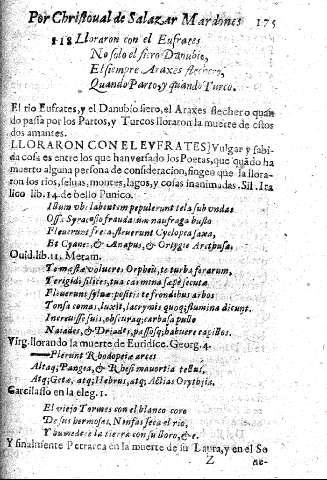 Por Christoual de Salazar Mardones 175
118 Lloraron con el Eufrates
No solo el fiero Danubio,
El siempre Araxes flechero,
Quando Parto, y quando Turco.
El rio Eufrates, y el Danubio fiero, el Araxes flechero quan
do passa por los Partos, y Turcos lloraron la muerte de estos
dos amantes.
LLORARON CON EL EVFRATES] Vulgar y sabi-
da cosa es entre los que han versado los Poetas, que quãdo ha
muerto alguna persona de consideracion, fingen que la llora-
ron los rios, seluas, montes, lagos, y cosas inanimadas. Sil. Ita
lico lib. 14. de bello Punico.
Illum vbi labentem pepulerunt tela sub vndas
Ossa Syracosio fraudatum naufraga busto
Fleuerunt freta, fleuerunt Cyclopea saxa,
Et Cyane, & Anapus, & Ortygie Arethusa.
Ouid. lib. 11. Metam.
Te mæstæ volucres Orpheu, te turba ferarum,
Te rigidi silices, tua carmina sæpe secutæ
Fleuerunt syluæ: positis te frondibus arbos
Tonsa comas, luxit, lacrymis quoq; flumina dicunt.
Increuisse suis, obscuraq; carbasa pullo
Naiades, & Driades, passosq; habuere capillos.
Virg. llorando la muerte de Euridice. Georg. 4.
Flerunt Rhodopeiæ arces
Altaq; Pangea, & Rhesi mauortia tellus,
Atq; Getæ, atq; Hebrus, atq; Actias Orythia.
Garcilasso en la eleg. 1.
El viejo Tormes con el blanco coro
De sus hermosas Ninfas seca el rio,
Y humedece la tierra con su lloro, &c.
Y finalmente Petrarca en la muerte de su Laura, y en el So
Z ne-